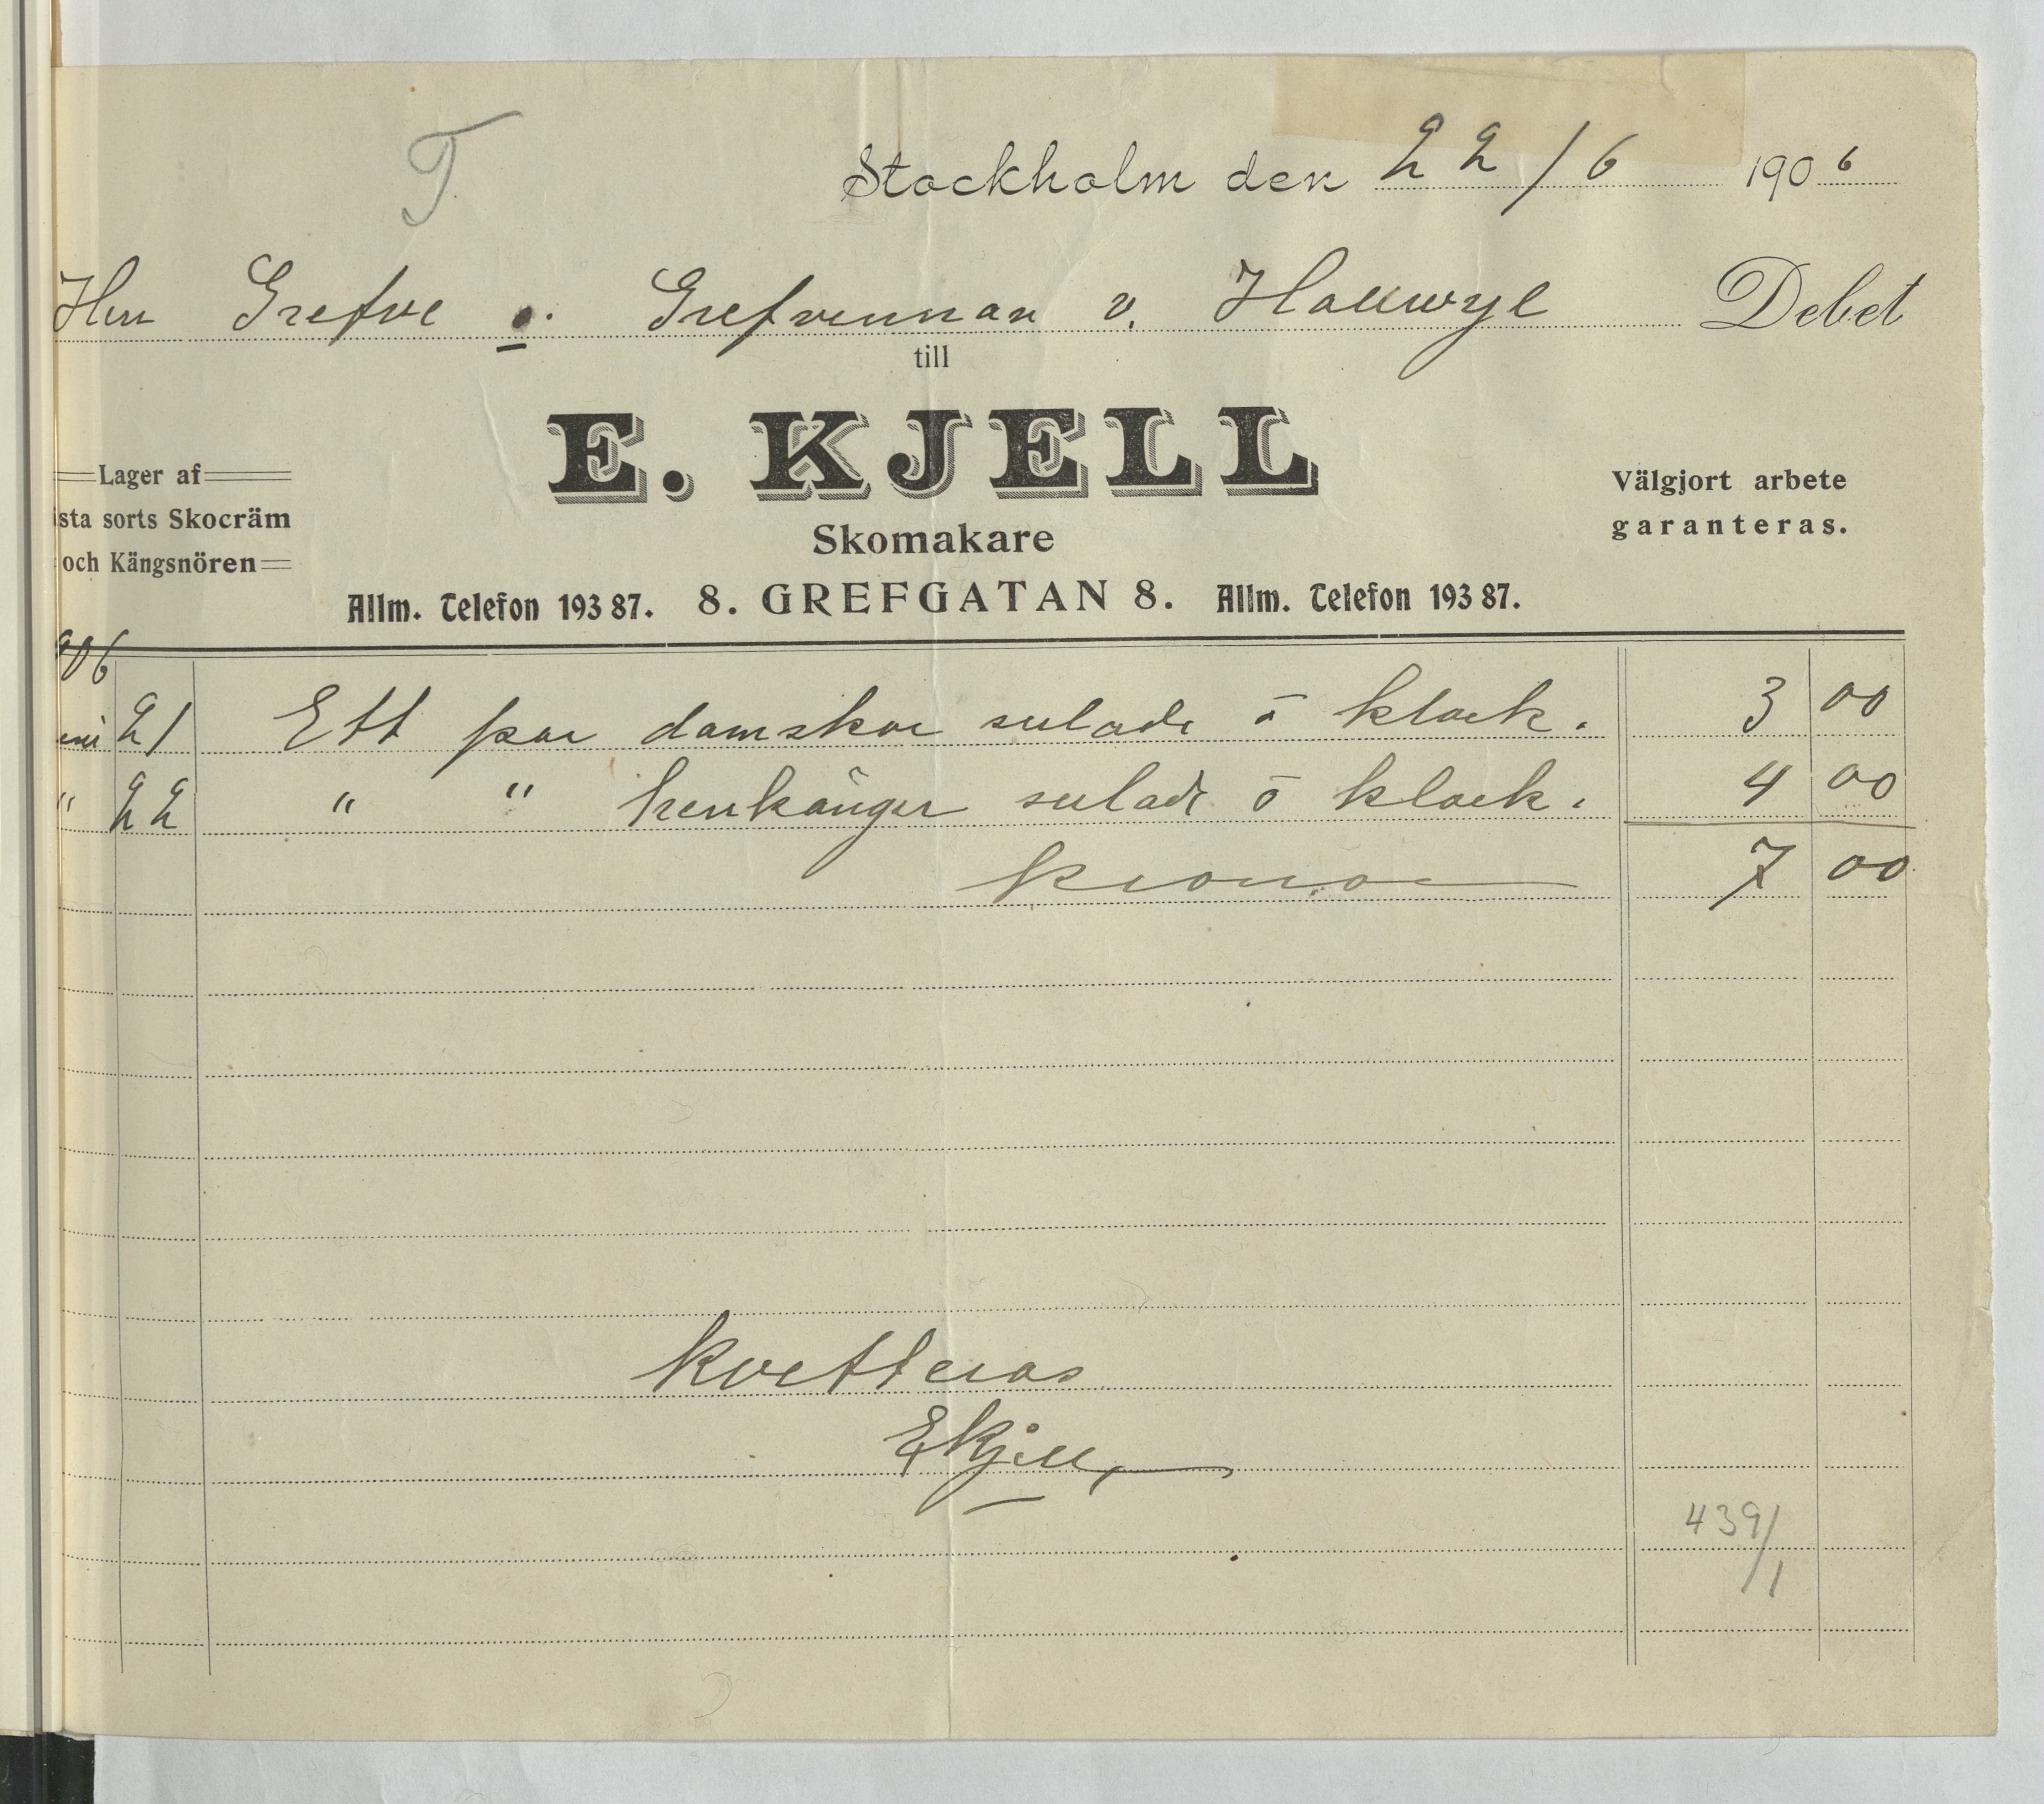 T
Stockholm den 22/6 1906
Herr Grefve o. Grefvennan v. Hallwyl Debet
till
E. KJELL
Skomakare
8. GREFGATAN 8.
Allm. Telefon 193 87.
Allm. Telefon 193 87.
Lager af
sta sorts Skocräm
och Kängsnören
Välgjort arbete
garanteras.
906
uni 21 Ett par damskor sulade o klack. 3 00
" 22 " " herrkänger sulade o klack. 4 00
Kronor 7 00
Kvitteras
E Kjell
439/1